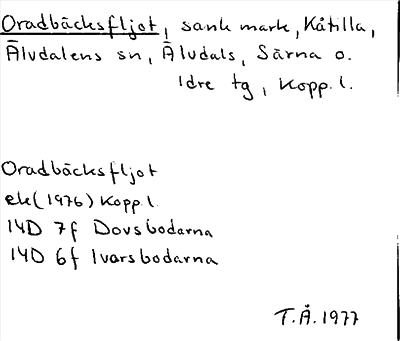 Oradbäcksfljot, sank mark, Kåtilla,
Älvdalens sn, Älvdals, Särna o.
Idre tg, Kopp.l.
Oradbäcksfljot
ek(1976) Kopp.l.
14D 7f Dovsbodarna
14D 6f Ivarsbodarna
T.Å.1977